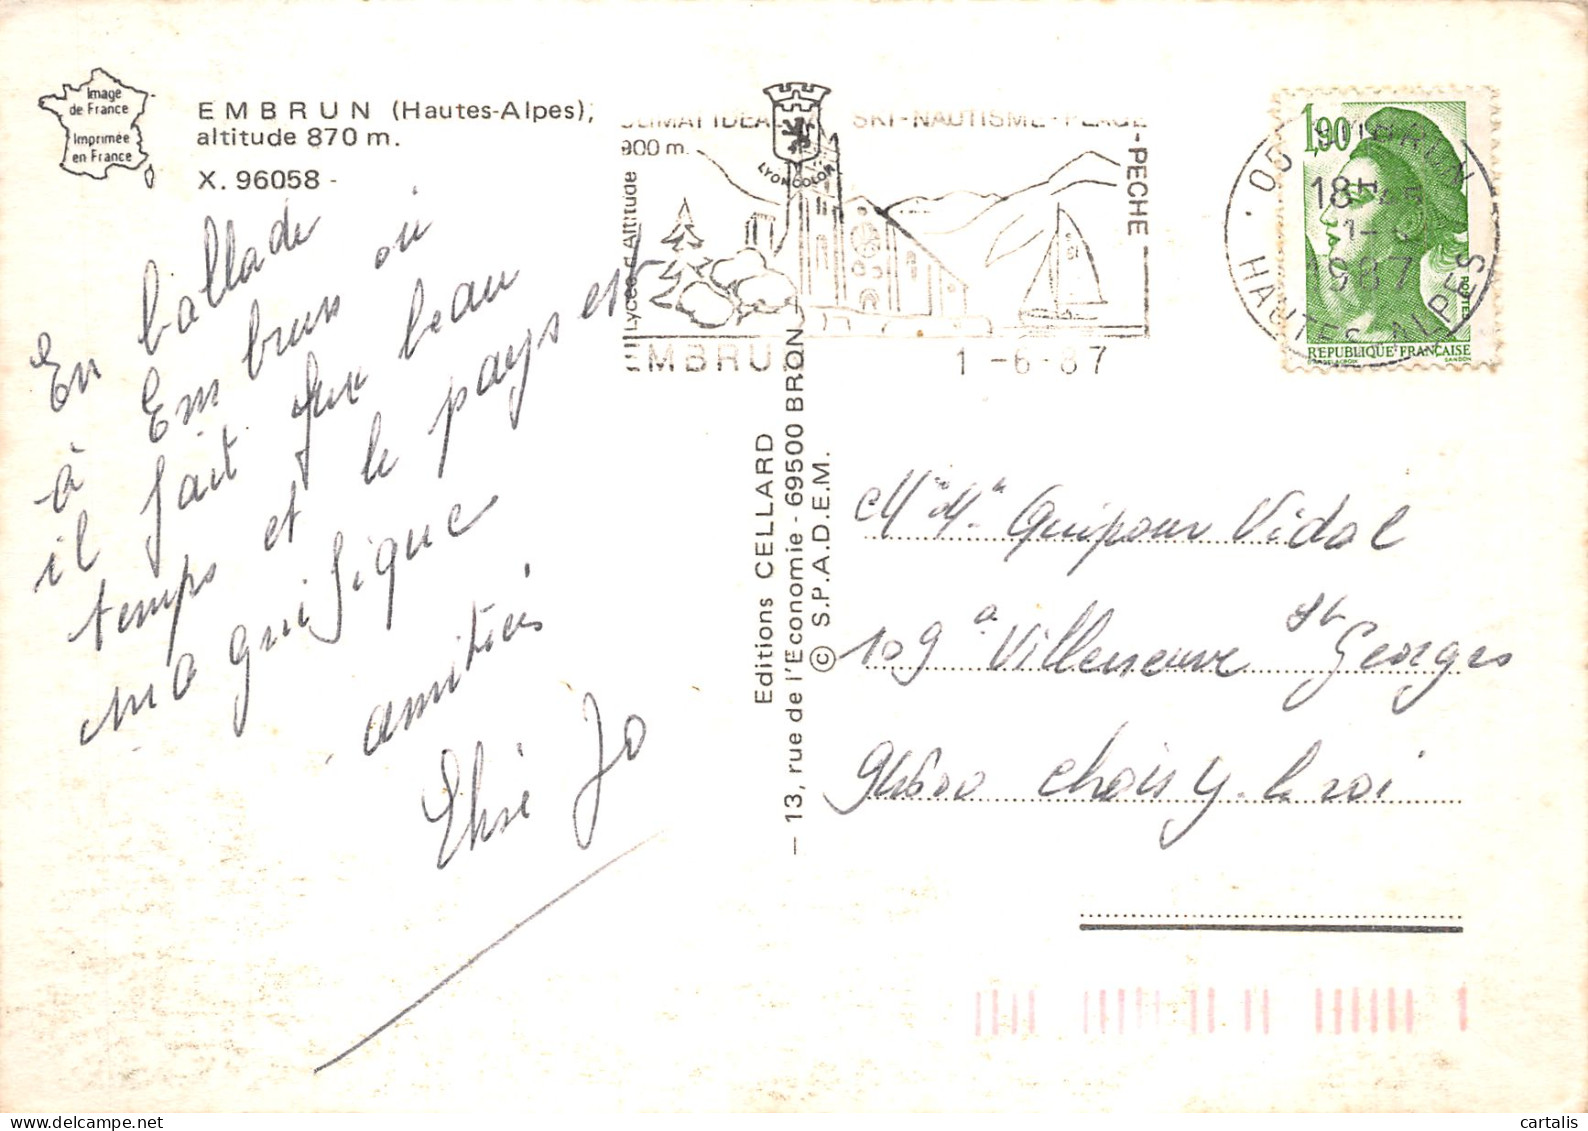 Image
de France
Imprimée
en France
EMBRUN (Hautes-Alpes),
altitude 870 m.
X. 96058 -
En ballade
à Embrun où
il fait beau
temps et le pays est
magnifique
amitiés
Jo
CLIMAT IDEAL SKI-NAUTISME-PLAGE
-PECHE
900 m.
Lycée d'Altitude
EMBRUN 1-6-87
LYONCOLOR
Editions CELLARD
— 13, rue de l'Economie - 69500 BRON
© S.P.A.D.E.M.
1,90
05 EMBRUN
18H
1-6
1987
HAUTES-ALPES
REPUBLIQUE FRANÇAISE
Mr Me Quipour Vidal
109 a Villeneuve St Georges
94600 Choisy-le roi
1
cartalis